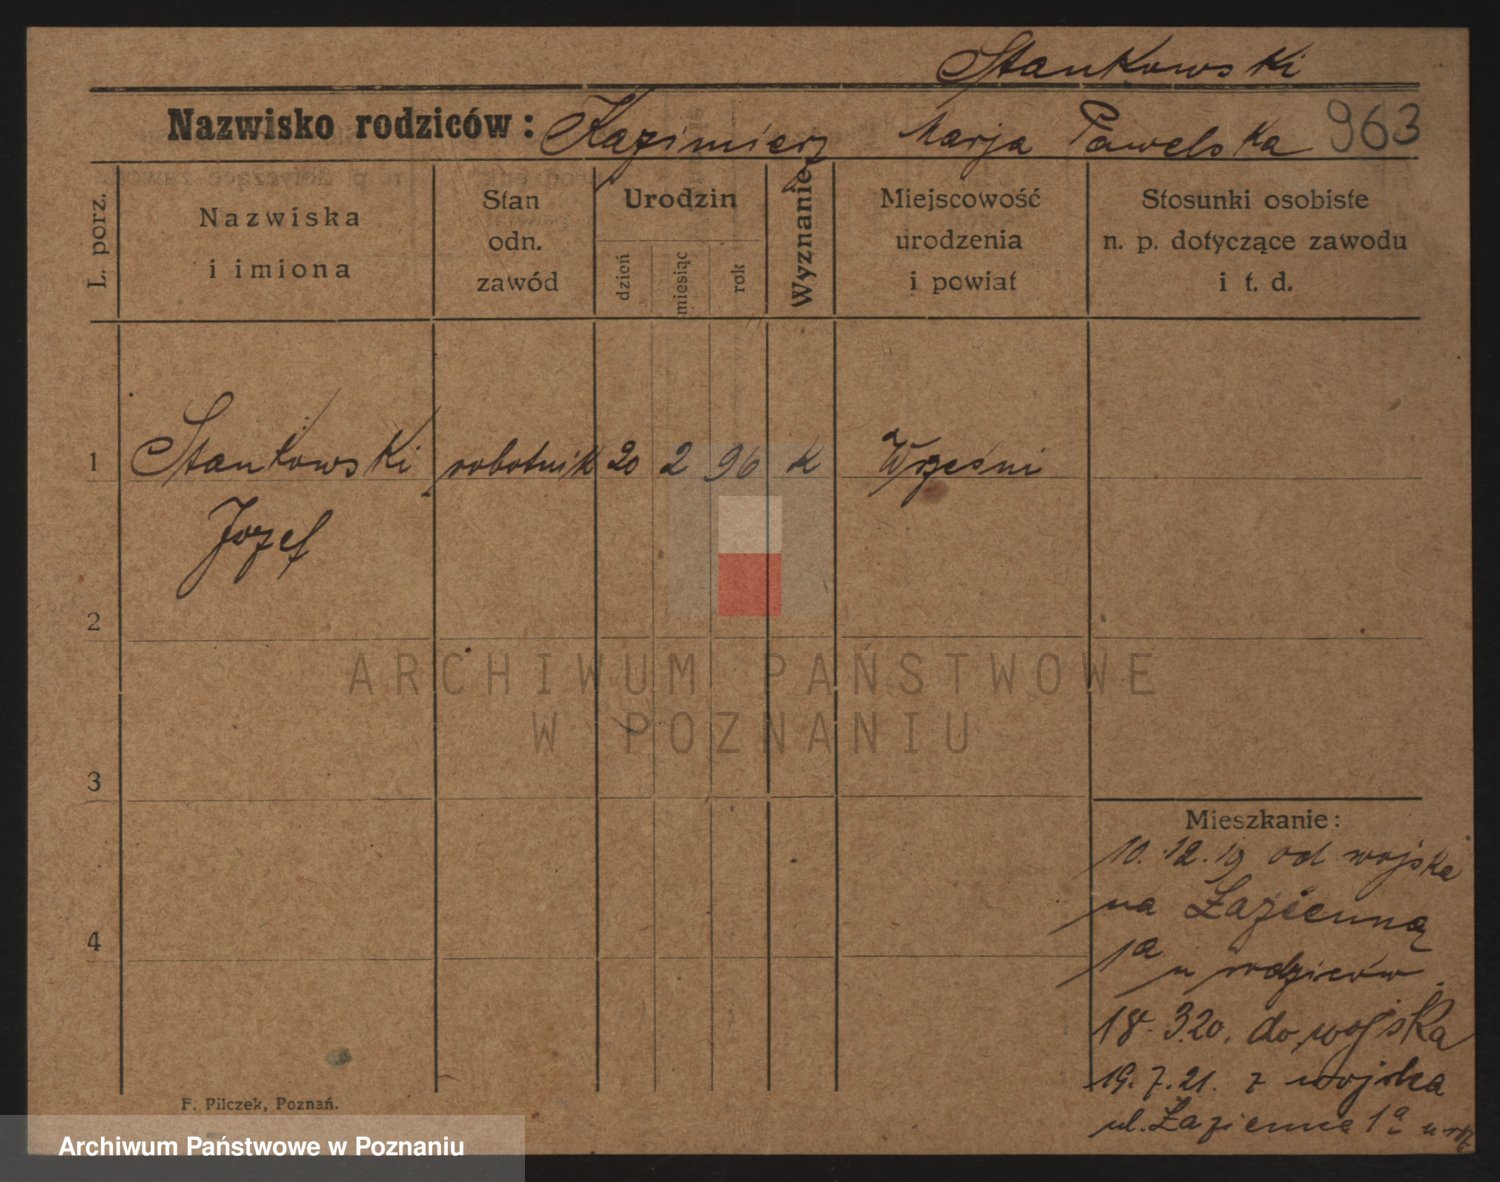 Stankowski
Nazwisko rodziców: Kazimierz Marja Pawelska 963
L. porz.
Nazwiska
i imiona
Stan
odn.
zawód
Urodzin
dzień
miesiąc
rok
Wyznanie
Miejscowość
urodzenia
i powiat
Stosunki osobiste
n. p. dotyczące zawodu
i t. d.
1 Stankowski robotnik 20 2 96 k Wrześni
Jozef
2
3
4
Mieszkanie:
10. 12. 19 od wojska
na Łazienną
1a u rodziców.
18. 3.20. do wojska
19. 7. 21. z wojska
ul. Łazienna 1a u
F. Pilczek, Poznań.
ARCHIWUM PAŃSTWOWE
W POZNANIU
Archiwum Państwowe w Poznaniu